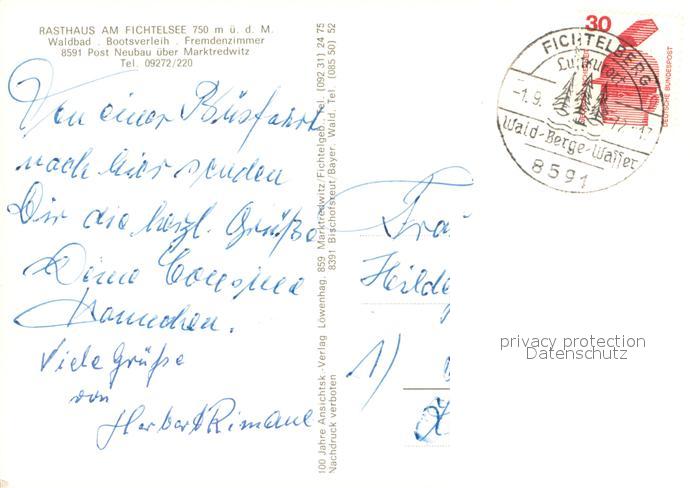 RASTHAUS AM FICHTELSEE 750 m ü. d. M.
Waldbad . Bootsverleih . Fremdenzimmer
8591 Post Neubau über Marktredwitz
Tel. 09272/220
Von einer Busfahrt
nach hier senden
Dir die herzl. Grüße
Deine Cousine
Hannchen.
Viele Grüße
von
Herbert
100 Jahre Ansichtsk.-Verlag Löwenhag, 859 Marktredwitz/Fichtelgeb., Tel. (092 31) 24 75
Nachdruck verboten 8391 Bischofsreut/Bayer. Wald, Tel (085 50) 52
30
DEUTSCHE BUNDESPOST
FICHTELBERG
Luftkurort
-1.9.
Wald-Berge-Wasser
8591
Frau
1)
privacy protection
Datenschutz